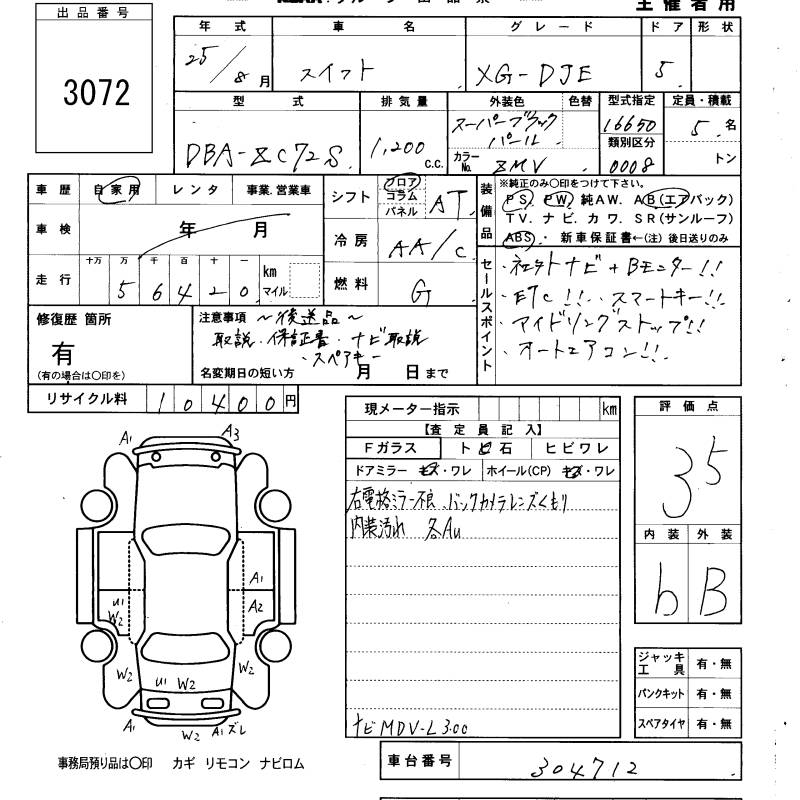 主催者用
出品番号
3072
年式 車名 グレード ドア 形状
25/8月 スイフト XG-DJE 5.
型式 排気量 外装色 色替 型式指定 定員・積載
DBA-ZC72S 1,200 c.c. スーパーブラックパール 16650 5.名
カラーNo. ZMV 類別区分 0008 トン
車歴 自家用 レンタ 事業.営業車
シフト フロア コラム パネル AT.
車検 年 月
冷房 AA/c
走行 十万 万 千 百 十 一
56420. km マイル
燃料 G
装備品 ※純正のみ〇印をつけて下さい。
PS. PW 純AW. AB(エアバック)
TV. ナビ. カワ. SR(サンルーフ)
ABS. 新車保証書←(注) 後日送りのみ
セールスポイント
・社外ナビ+Bモニター!!
・ETC!!. スマートキー!!
・アイドリングストップ!!
・オートエアコン!!.
修復歴 箇所
有
(有の場合は〇印を)
注意事項 ～後送品～
取説・保証書・ナビ取説
・スペアキー
名変期日の短い方 月 日まで
リサイクル料 10400円
現メーター指示 km
【査定員記入】
Fガラス トビ石 ヒビワレ
ドアミラー キズ・ワレ ホイール(CP) キズ・ワレ
右電格ミラー不良 バックカメラレンズくもり
内装汚れ 各AU
ナビMDV-L300
評価点
3.5
内装 外装
b B
ジャッキ 工具 有・無
パンクキット 有・無
スペアタイヤ 有・無
A1 A3
A1
U1 A2
W2
W2 U1 W2 W2
A1 W2 A1ズレ
事務局預り品は〇印 カギ リモコン ナビロム
車台番号 304712